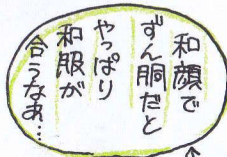 和顔で
ずん胴だと
やっぱり
和服が
合うなあ…